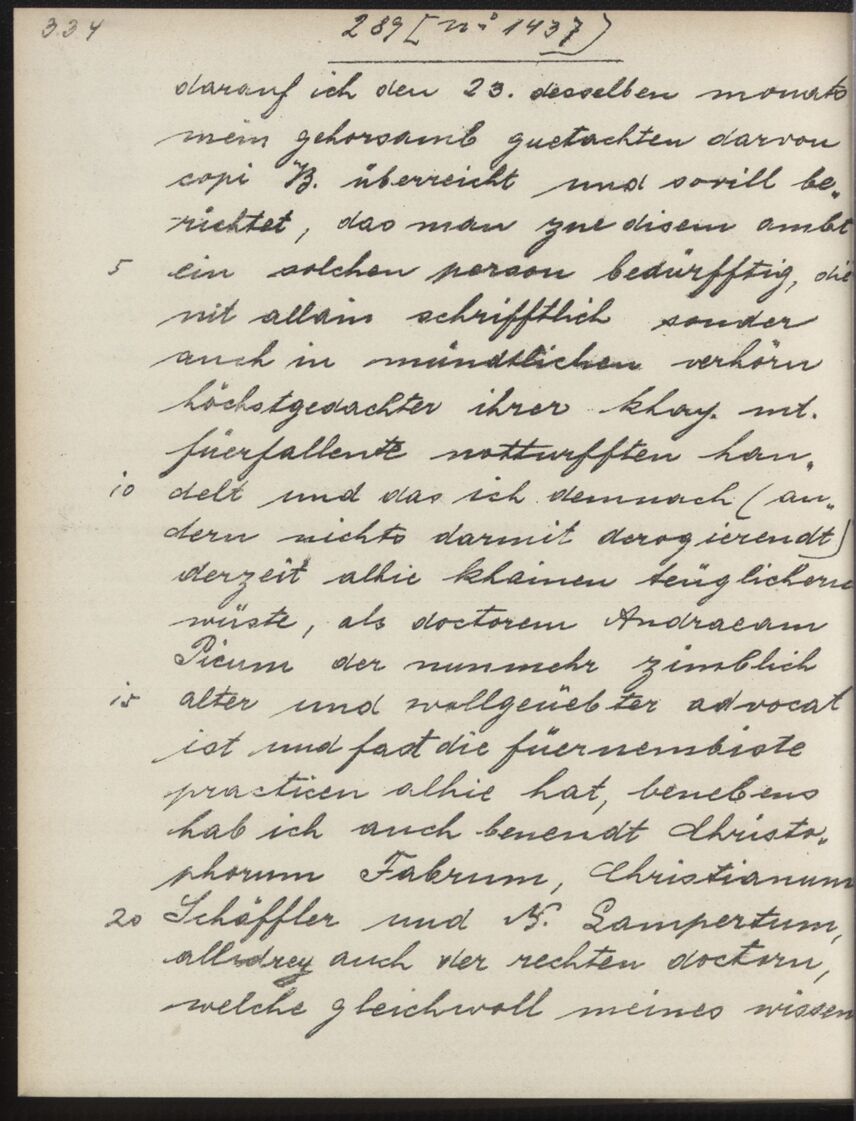 334
289 [nº 1437)
darauf ich den 23. desselben monats
mein gehorsamb guetachten darvon
copi B. überreicht und sovill be„
richtet, das man zue disem ambt
5 ein solchen person bedürfftig, die
nit allain schrifftlich sonder
auch in mündtlichen verhörn
höchstgedachter ihrer khay. mt.
füerfallente notturfften han„
10 delt und das ich demnach (an„
dern nichts darmit derogierendt)
derzeit alhie khainen teüglichern
wüste, als doctorem Andraeam
Picum der nunmehr zimblich
15 alter und wollgeüebter advocat
ist und fast die füernembiste
practicen alhie hat, benebens
hab ich auch benendt Christo„
phorum Fabrum, Christianum
20 Schäffler und N. Lampertum,
alle drey auch der rechten doctorn,
welche gleichwoll meines wissen